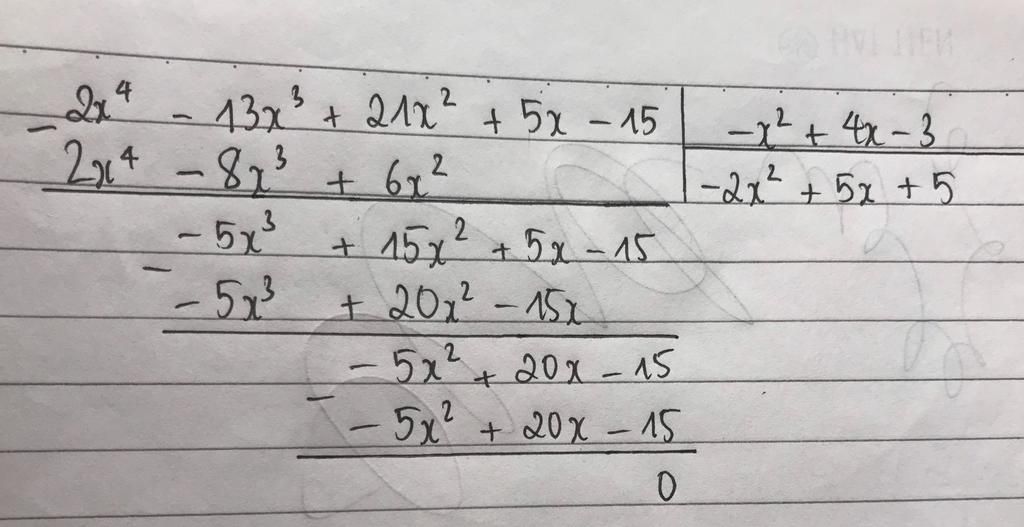 2x⁴ - 13x³ + 21x² + 5x - 15 | -x² + 4x - 3
- 2x⁴ - 8x³ + 6x² | -2x² + 5x + 5
- 5x³ + 15x² + 5x - 15
- - 5x³ + 20x² - 15x
- 5x² + 20x - 15
- - 5x² + 20x - 15
0